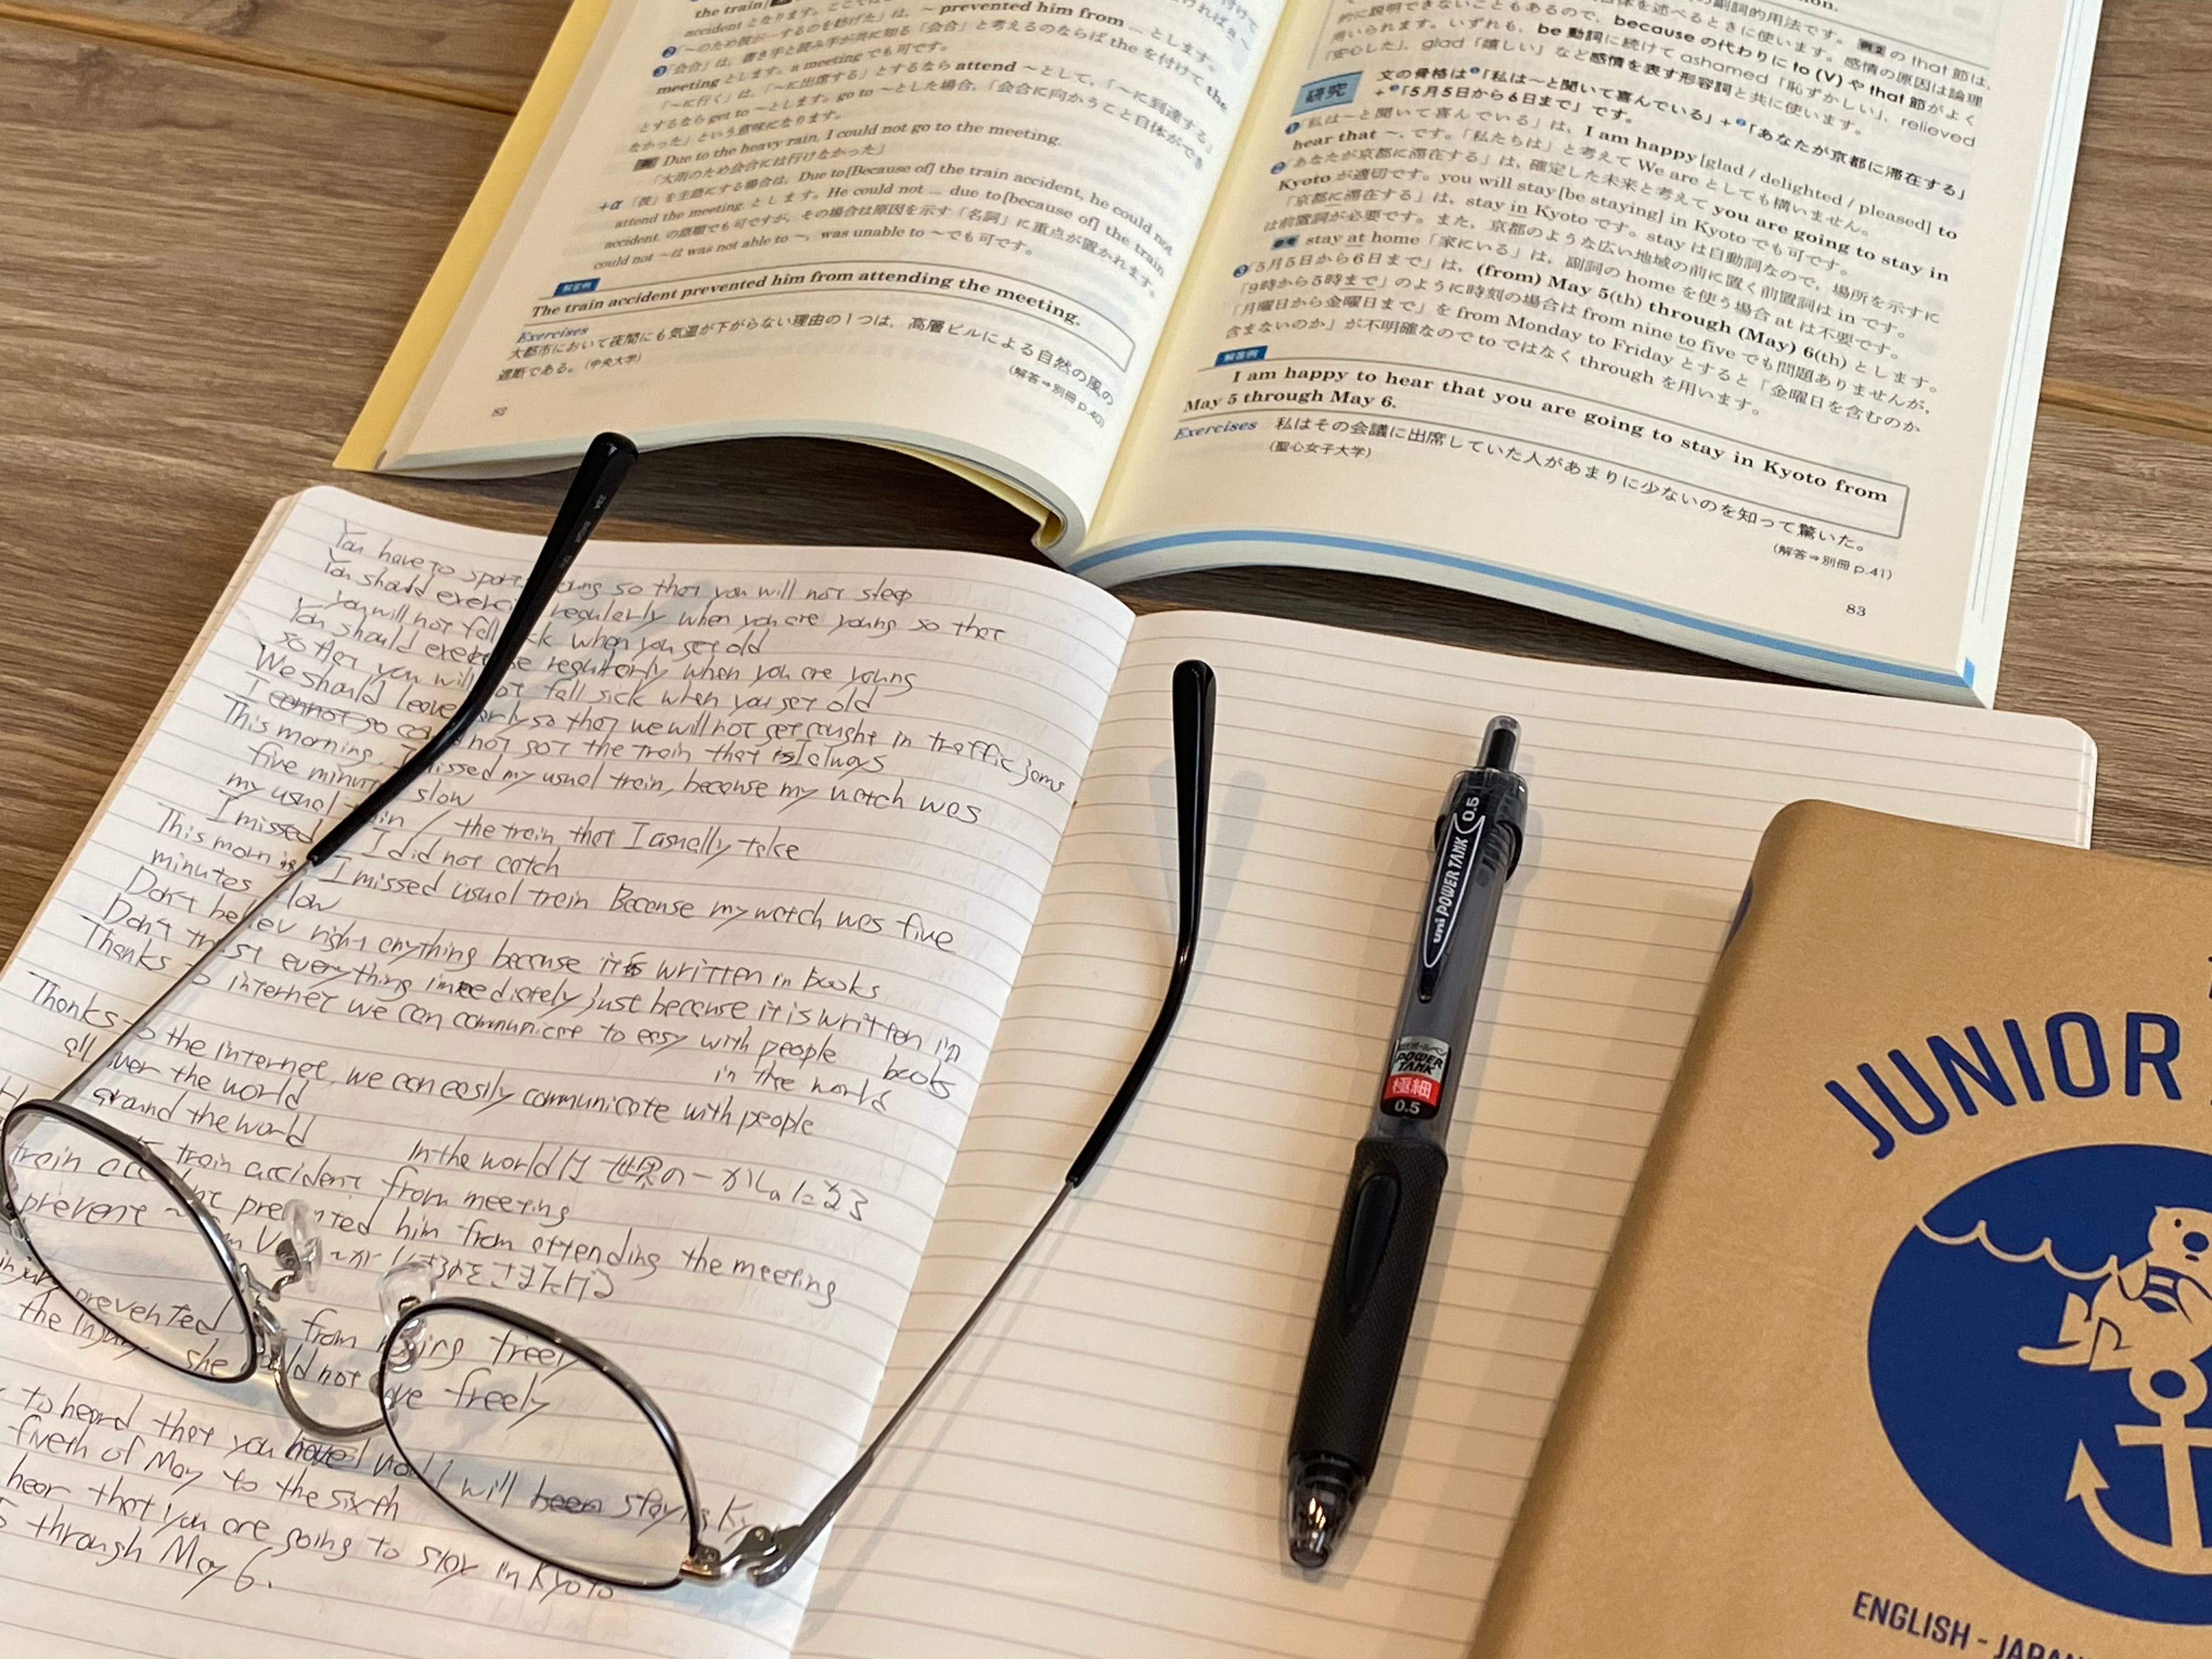 the train
accident となります。ここでは
「~のため彼が…するのを妨げた」は、~ prevented him from ... とします。
「会合」は、書き手と読み手が共に知る「会合」と考えるのならば the を付けて the
meeting とします。a meeting でも可です。
「~に行く」は、「~に出席する」とするなら attend ~として、「~に到達する」
とするなら get to ~とします。go to ~とした場合、「会合に向かうこと自体ができ
なかった」という意味になります。
例 Due to the heavy rain, I could not go to the meeting.
「大雨のため会合には行けなかった」
+α 「彼」を主語にする場合は、Due to [Because of] the train accident, he could not
attend the meeting. とします。He could not ... due to [because of] the train
accident. の語順でも可ですが、その場合は原因を示す「名詞」に重点が置かれます。
could not ~は was not able to ~, was unable to ~でも可です。
解答例
The train accident prevented him from attending the meeting.
Exercises
大都市において夜間にも気温が下がらない理由の1つは、高層ビルによる自然の風の
遮断である。(中央大学)
(解答⇒別冊 p.40)
82
の副詞的用法です。例2 の that 節は、
的に説明できないこともあるので、because の代わりに to (V) や that 節がよく
用いられます。いずれも、be 動詞に続けて ashamed「恥ずかしい」, relieved
「安心した」, glad「嬉しい」など感情を表す形容詞と共に使います。
研究
文の骨格は❶「私は~と聞いて喜んでいる」+❷「あなたが京都に滞在する」
+❸「5月5日から6日まで」です。
❶「私は~と聞いて喜んでいる」は、I am happy [glad / delighted / pleased] to
hear that ~. です。「私たちは」と考えて We are としても構いません。
❷「あなたが京都に滞在する」は、確定した未来と考えて you are going to stay in
Kyoto が適切です。you will stay [be staying] in Kyoto でも可です。
「京都に滞在する」は、stay in Kyoto です。stay は自動詞なので、場所を示すに
は前置詞が必要です。また、京都のような広い地域の前に置く前置詞は in です。
参考 stay at home「家にいる」は、副詞の home を使う場合 at は不要です。
❸「5月5日から6日まで」は、(from) May 5(th) through (May) 6(th) とします。
「9時から5時まで」のように時刻の場合は from nine to five でも問題ありませんが、
「月曜日から金曜日まで」を from Monday to Friday とすると「金曜日を含むのか
含まないのか」が不明確なので to ではなく through を用います。
解答例
I am happy to hear that you are going to stay in Kyoto from
May 5 through May 6.
Exercises 私はその会議に出席していた人があまりに少ないのを知って驚いた。
(聖心女子大学)
(解答⇒別冊 p.41)
83
You have to sport young so that you will not sleep
You should exerci regularly when you are young so that
you will not fall ck when you get old
You should exercise regularly when you are young
so that you will not fall sick when you get old
We should leave early so that we will not get caught in traffic jams
I cannot go could not got the train that is I always
This morning, I missed my usual train, because my watch was
five minutes slow
my usual train / the train that I usually take
I missed I did not catch
This morning I missed usual train Because my watch was five
minutes slow
Don't believ right anything because it is written in books
Don't trust everything immediately just because it is written in
books
Thanks to internet we can communicate to easy with people
in the world
Thanks to the internet, we can easily communicate with people
all over the world
around the world
In the world は 世界の一かしょになる
train accident from meeting
train accident prevented him from attending the meeting
prevent ~ from V ~が Vするのをさまたげる
prevented from moving freely
the injury she could not move freely
to heard that you have will stay in Ky
fiveth of May to the sixth
hear that you are going to stay in Kyoto
5 through May 6.
uni POWER TANK 0.5
POWER TANK
極細
0.5
JUNIOR
ENGLISH - JAPAN